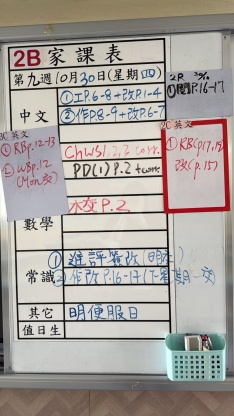 2B 家課表
第九週 10月30日(星期四)
中文
①工P.6-8+改P.1-4
②作P.8-9+改P.6-7
2R
①閱P.16-17
2C 英文
①RB P.12-13
②WB P.12
(Mon交)
Chws1.2,3 corr.
PD(1) P.2 + corr.
2C 英文
①RB(p17,19)
改(p.15)
數學
P.2
常識
①進評簽改(明交)
②作改 P.16-17(下星期一交)
其它
明便服日
值日生